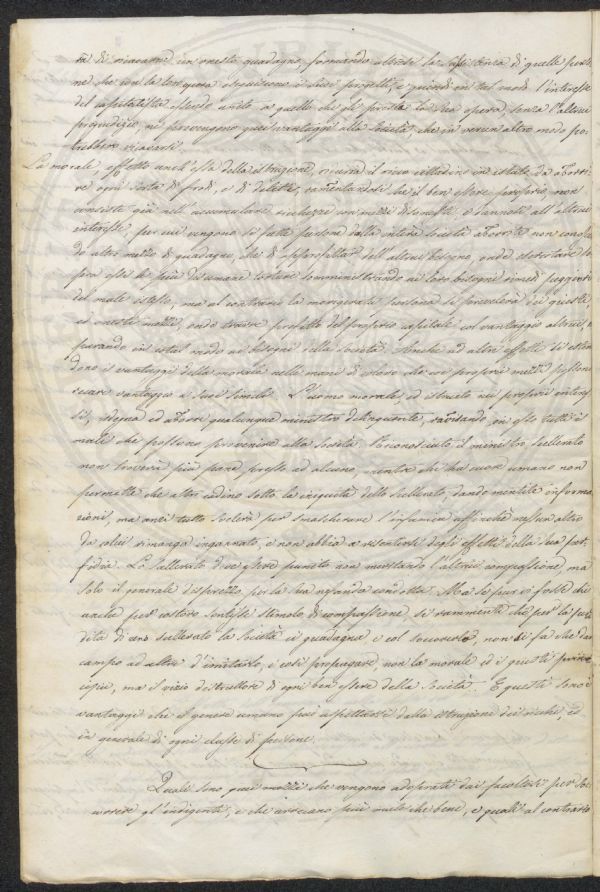 di ricavare un onesto guadagno, formando altresì la sussistenza di quelle perso
ne che con la lor opera eseguiscono i suoi progetti, e quindi in tal modo l'interesse
del capitalista essendo unito a quello che gli presta la sua opera, senza l'altrui
pregiudizio, ne pervengono quei vantaggi alla Società, che in verun altro modo po
trebbero ricavarsi.
La morale, effetto anch'essa della istruzione, il ricco cittadino in istato da aborri
re ogni sorta di frodi, e di delitti, rammentandosi che il ben essere proprio, non
consiste già nell'accumulare richezze con mezzi disonesti, e dannosi all'altrui
interesse, per cui vengono sì fatte persone dalla intera società aborrite non conoscen
do altro mezzo di guadagno, che di approfittar del altrui bisogno, onde esercitare so
pra essi le più disumane torture somministrando ai loro bisogni rimedj peggiori
del male istesso, ma al contrario la morigerata persona si prevalerà dei giusti
ed onesti mezzi, onde trarre profitto del proprio capitale col vantaggio altrui, ri
parando in total modo ai bisogni della società. Anche ad altri effetti si esten
dono i vantaggi della morale nelle mani di coloro che coi proprii mezzi possono
recare vantaggio a' suoi simili. L'uomo morale, ed istruito nei proprii interes
si, sdegna ed aborre qualunque ministro delinquente, ravisando in esso tutti i
mali che possono provenire alla Società. Riconosciuto il ministro scellerato
non troverà più pane presso ad alcuno, mentre che buon cuore umano non
permette che altri cadino sotto la iniquità dello scellerato, dando mentite informa
zioni, ma anzi tutto zelerà per smascherare l'infamia affinchè nessun altro
da colui rimanga ingannato, e non abbia a risentirsi degli effetti della sua per
fidia. Lo scellerato deve essere punito non meritando l'altrui compassione, ma
solo il generale disprezzo per la sua nefanda condotta. Ma se pur vi fosse chi
anche per costoro sentisse stimolo di compassione, si rammenti che per la per
dita di uno scellerato la Società ci guadagna e col soccorerlo, non si fa che dar
campo ad altri d'imitarlo, e così propagare, non la morale ed i giusti prin
cipii, ma il vizio distruttore di ogni ben essere della Società. E questi sono i
vantaggi che il genere umano può aspettarsi dalla istruzione dei ricchi, ed
in generale di ogni classe di persone.
Quali sono quei mezzi che vengono adoprati dai facoltosi per soc
correre gl'indigenti, e che arrecano più male che bene, e quali al contrario